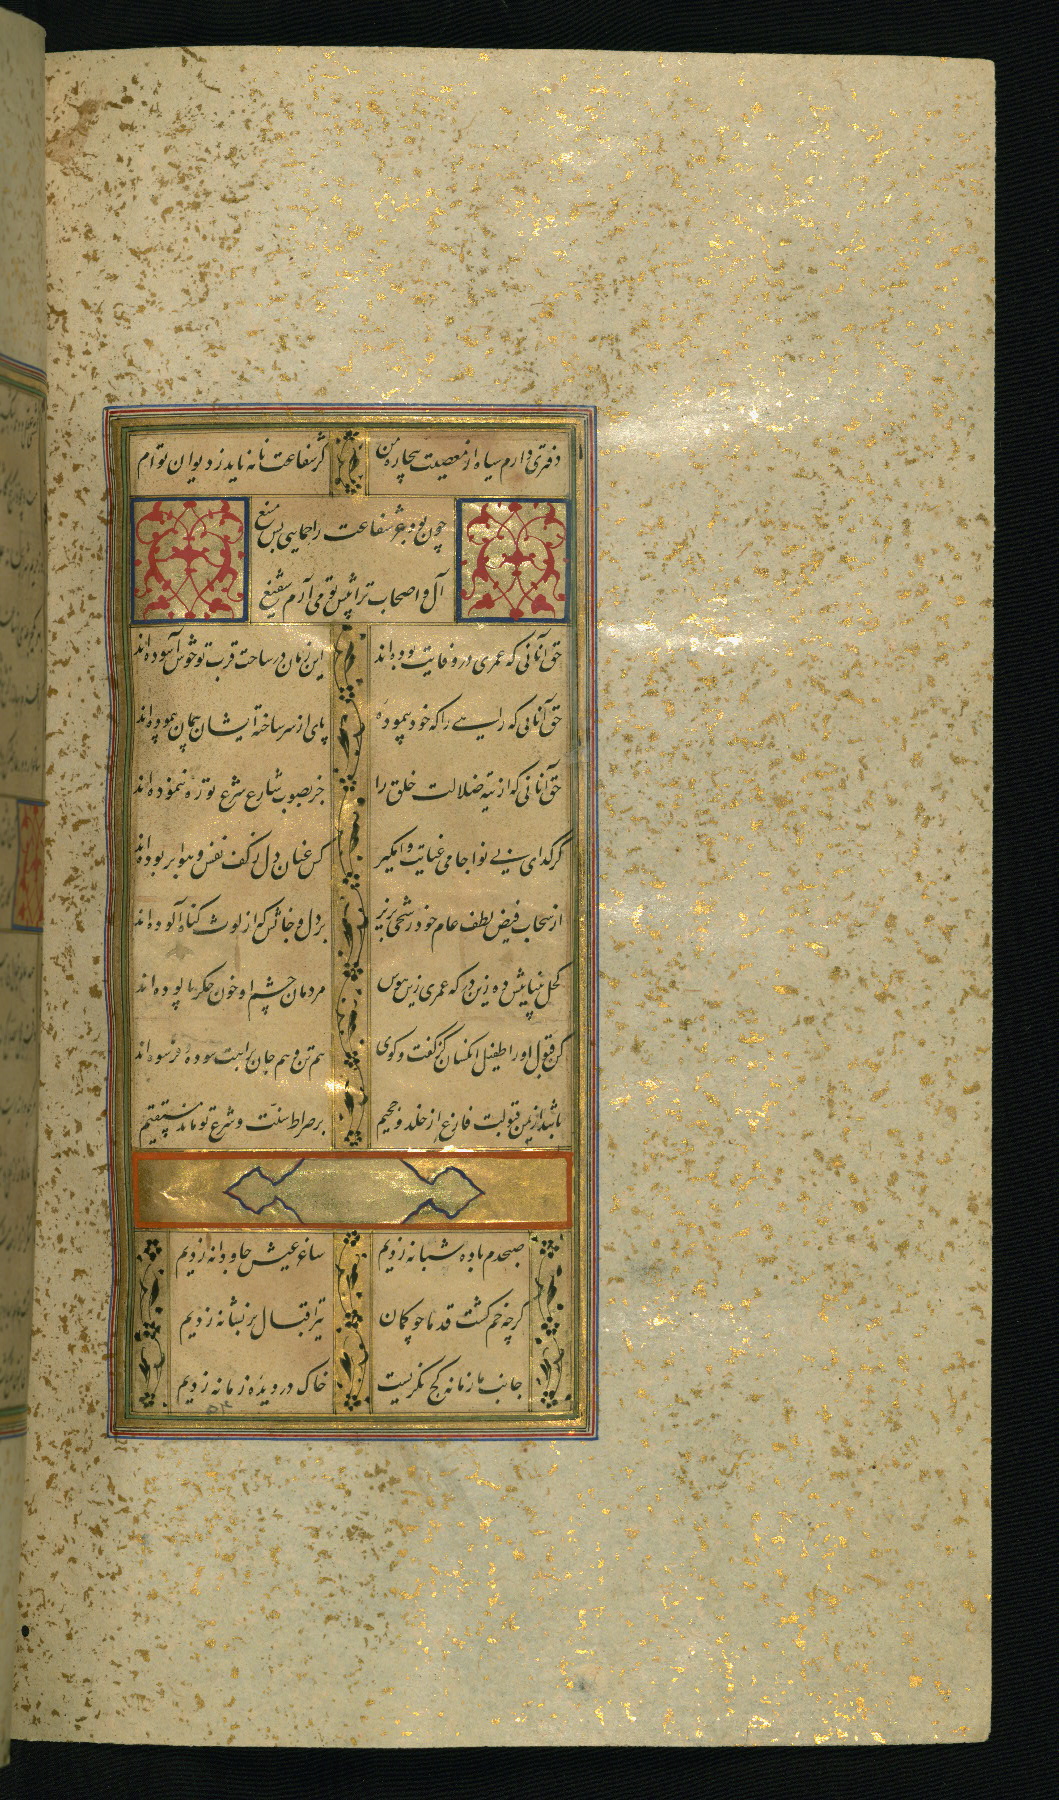 دفتری دارم سیاه از معصیت بیچاره من گر شفاعت نامه ناید ز دیوان توام
چون بود بهر شفاعت را حمایی بس منیع
آل و اصحاب ترا پیش تو می آرم شفیع
حق آنانی که عمری در وفایت بوده اند این زمان در ساحت قربت تو خوش آسوده اند
حق آنانی که راهی را که خود پیموده پای از سر ساخته ایشان همان پیموده اند
حق آنانی که از تیه ضلالت خلق را جز بصوب شارع شرع تو ره ننموده اند
کز گدای بی نوا جامی عنایت وامگیر کش عنان دل ز کف نفس و هوا بربوده اند
از سحاب فیض لطف عام خود رشحی بریز بر دل و جانش که از لوث گناه آلوده اند
کحل بیناییش ده زین در که عمری زین هوس مردمان چشم او خون جگر پالوده اند
کن قبول او را طفیل آنکسان کز گفت و گوی هم تن و هم جان براهت سوده و فرسوده اند
باشد از یمن قبولت فارغ از خلد و جحیم بر صراط سنت و شرع تو ماند مستقیم
صبحدم باده شبانه زدیم ساغر عیش جاودانه زدیم
گرچه خم گشت قد ما چو کمان تیر اقبال بر نشانه زدیم
جانب ما زمانه کج نگریست خاک در دیده زمانه زدیم